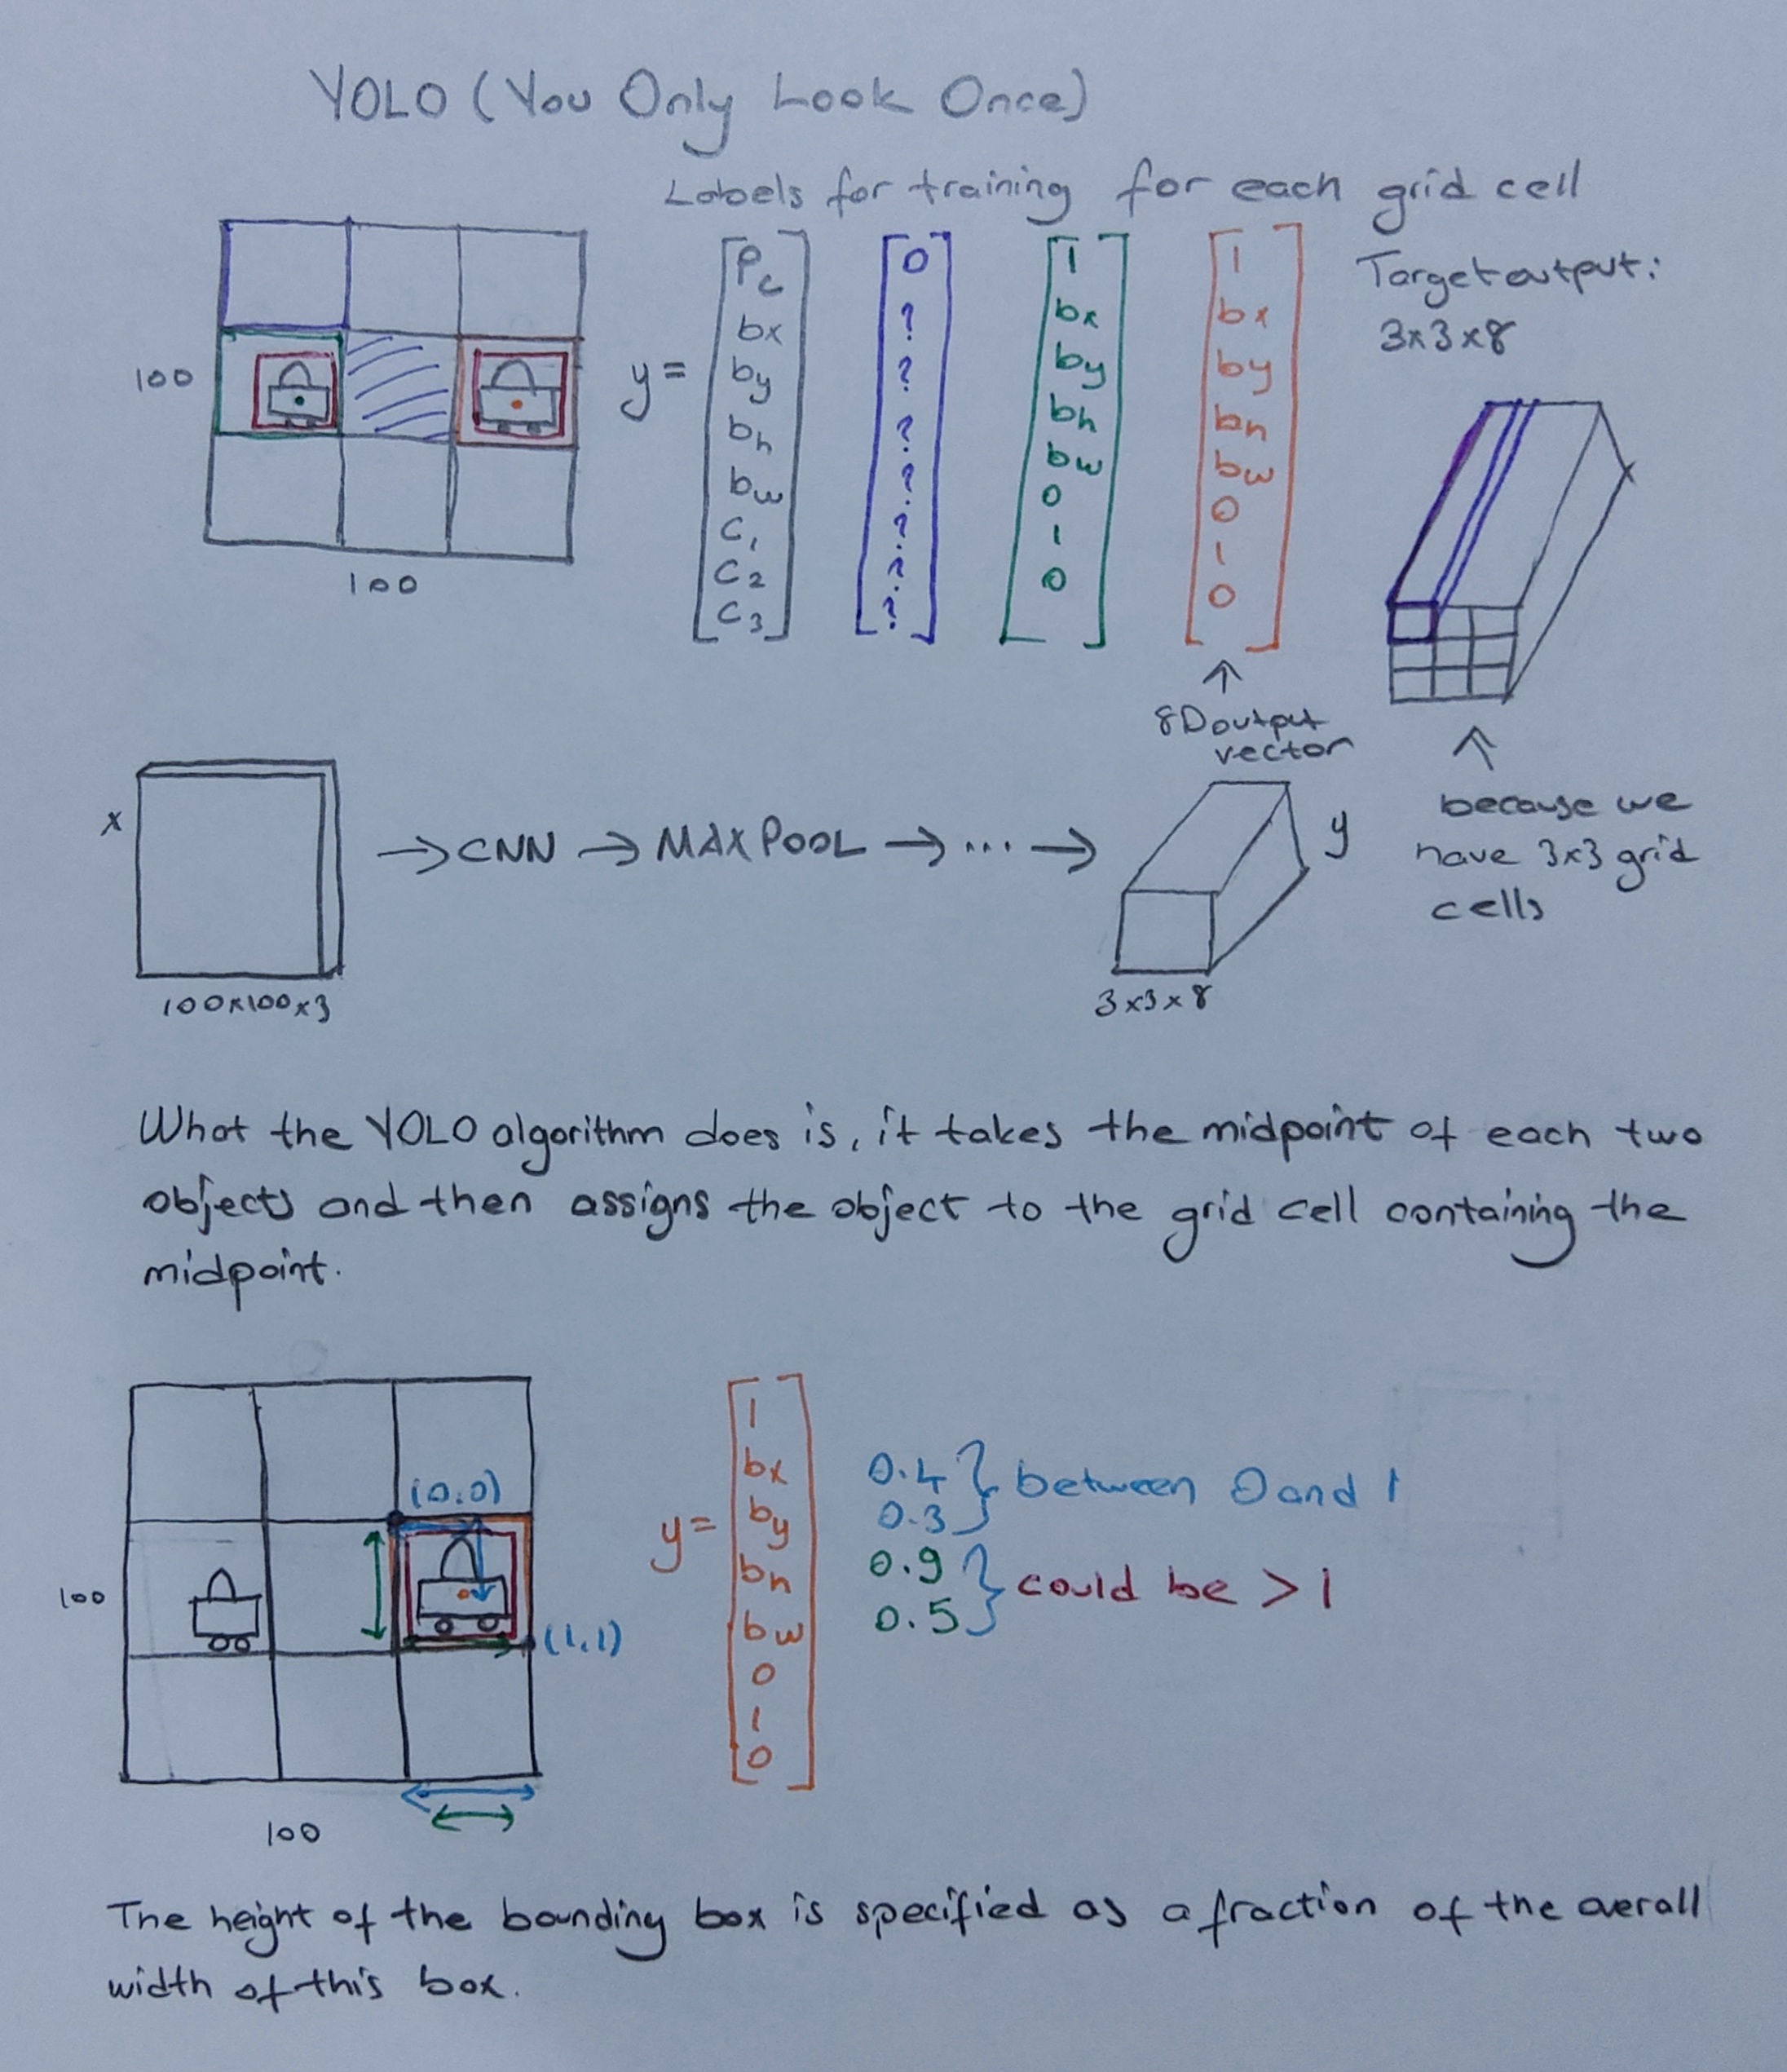 YOLO (You Only Look Once)
Labels for training for each grid cell
100
100
y =
Pc
bx
by
bh
bw
C1
C2
C3
0
?
?
?
?
?
?
?
1
bx
by
bh
bw
0
1
0
1
bx
by
bh
bw
0
1
0
Target output:
3x3x8
8D output
vector
because we
have 3x3 grid
cells
x
100x100x3
→ CNN → MAX POOL → ... →
y
3x3x8
What the YOLO algorithm does is, it takes the midpoint of each two
objects and then assigns the object to the grid cell containing the
midpoint.
(0,0)
(1,1)
100
100
y =
1
bx
by
bh
bw
0
1
0
0.4
0.3
} between 0 and 1
0.9
0.5
} could be > 1
The height of the bounding box is specified as a fraction of the overall
width of this box.